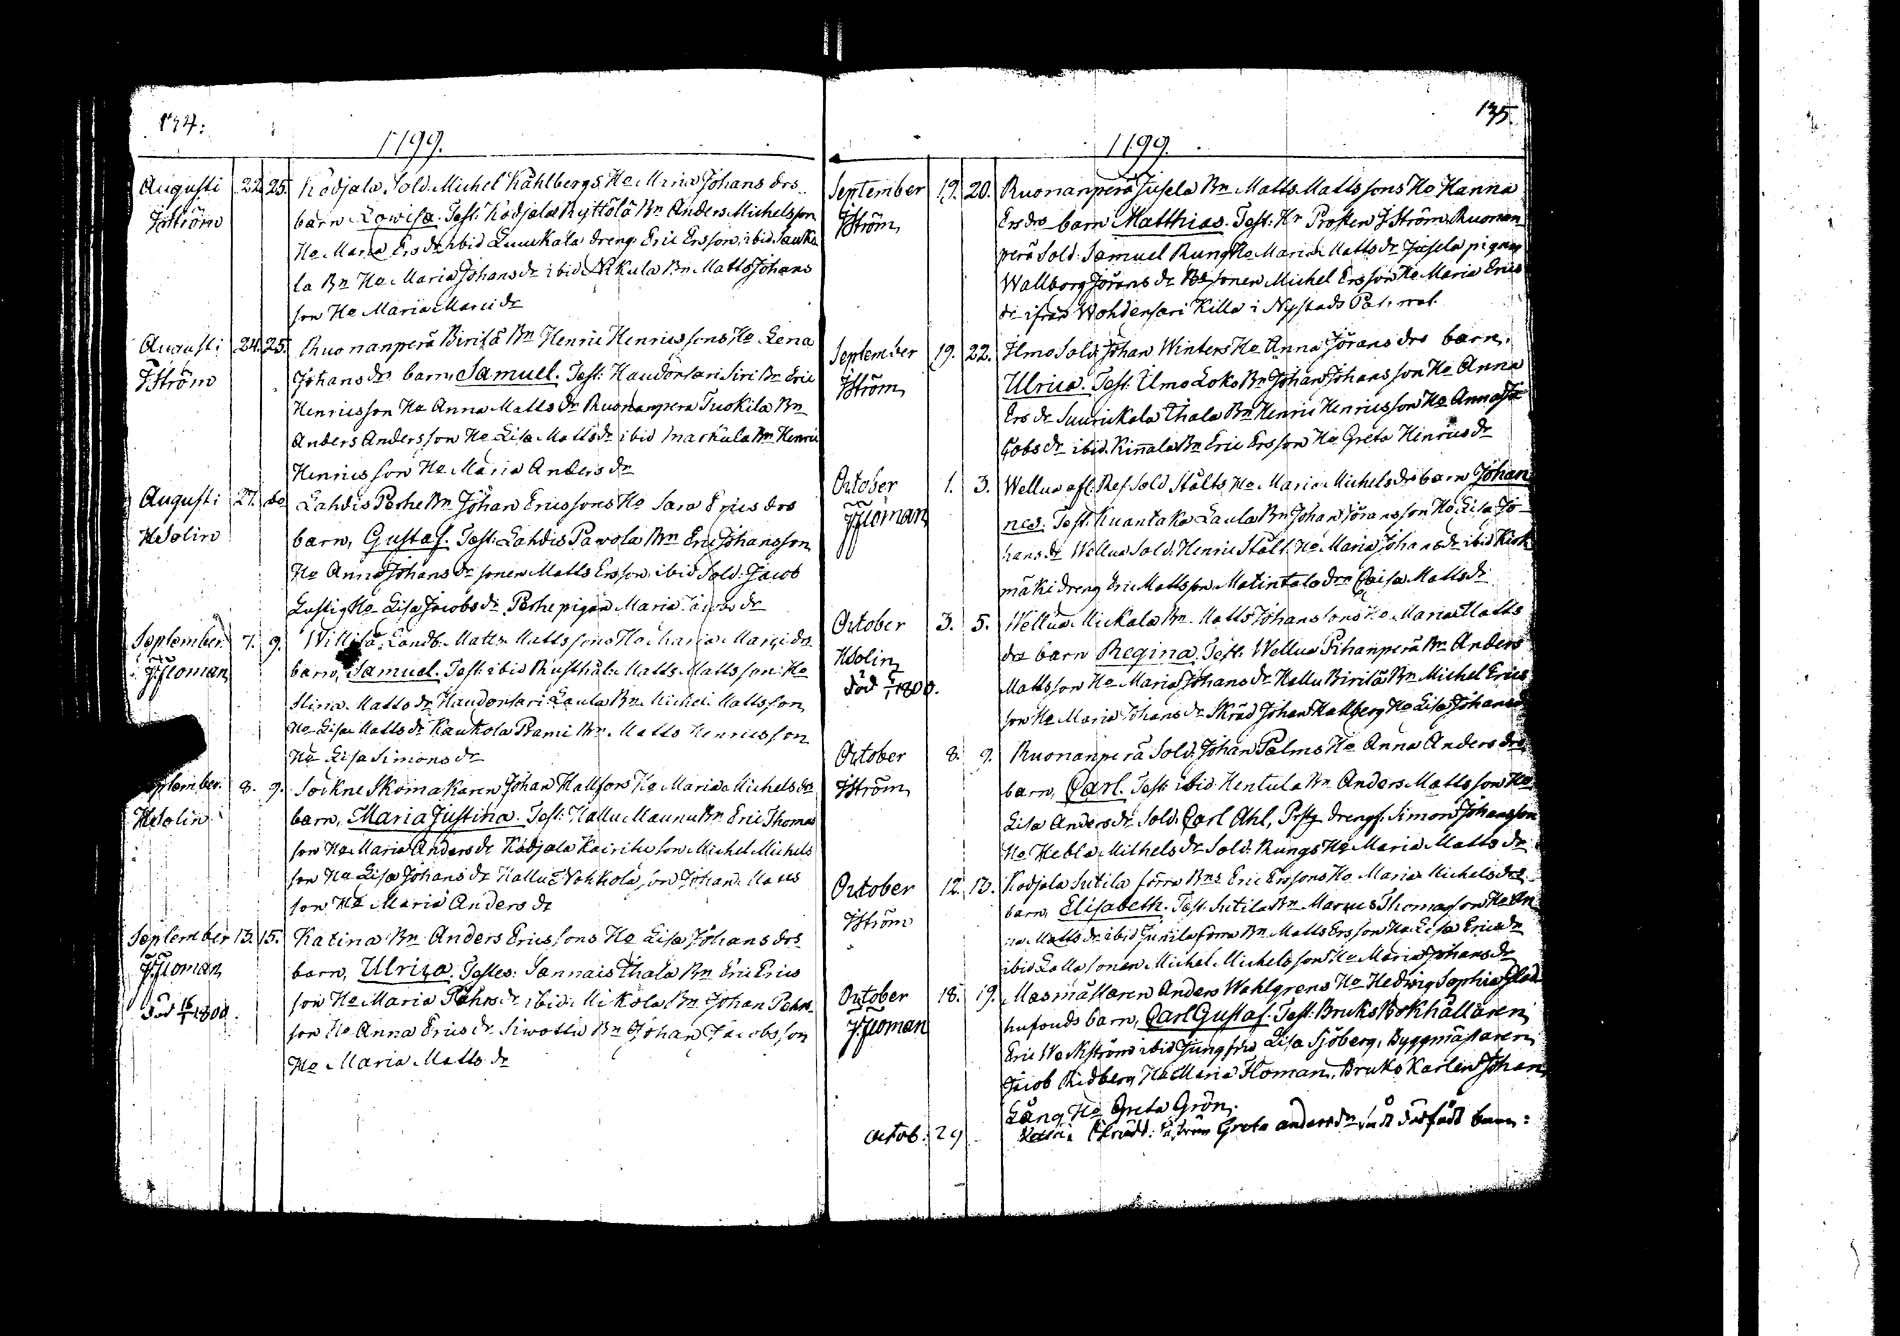 134:
1799.
Augusti 22. 25. Kodjala Sold. Michel Kåhlbergs Ho Maria Johans drs
JStröm barn Lowisa. Test: Kodjala Ryttölä Bn Anders Michelsson
Ho Maria Ers dr ibid Suukala dreng Eric Ersson, ibid.
la Bn Ho Maria Johans dr ibid Nikula Bn Matts Johans
son Ho Maria Marci dr
Augusti 24. 25. Ruonanperä Birilä Bn Henric Henricssons Ho Lena
JStröm Johans drs barn Samuel. Test: Haudonsari Siri Bn Eric
Henricsson Ho Anna Matts dr Ruonanpera Tuokila Bn
Anders Andersson Ho Lisa Matts dr ibid Markula Bn Henric
Henricsson Ho Maria Anders dr
Augusti 27. do Lahdis Perhe Bn Johan Ericssons Ho Sara Erics drs
HSolin barn, Gustaf. Test: Lahdis Pawola Bn Eric Johansson
Ho Anna Johans dr sonen Matts Ersson, ibid Sold: Jacob
Lustig Ho Lisa Jacobs dr Perhe pigan Maria Jacobs dr
September 7. 9. Willilä Landb. Matts Mattssons Ho Maria Marci drs
JFloman barn, Samuel. Test: ibid Rusthål: Matts Mattsson Ho
Stina Matts dr Haudonsari Laula Bn Michel Mattsson
Ho Lisa Matts dr Kaukola Prami Bn Matts Henricsson
Ho Lisa Simons dr
September 8. 9. Sockne Skomakaren Johan Hallfors Ho Maria Michels drs
HSolin barn, Maria Justina. Test: Kallu Maunu Bn Eric Thomas
son Ho Maria Anders dr Kodjala Kairike son Michel Michels
son Ho Lisa Johans dr Kallu Nohkola son Johan Matts
son Ho Maria Anders dr
September 13. 15. Katina Bn Anders Ericssons Ho Lisa Johans drs
JFloman barn, Ulrica. Testes: Sannais Thala Bn Eric Erics
son Ho Maria Påhrs dr ibid. Mikola Bn Johan Påhr
Död 1800. son Ho Anna Erics dr Siwotta Bn Johan Jacobsson
Ho Maria Matts dr
135.
1799.
September 19. 20. Ruonanperä Jusela Bn Matts Mattssons Ho Hanna
JStröm Ers drs barn Matthias. Test: Hr Prosten JStröm, Ruonan
perä Sold: Samuel Rung Ho Maria Matts dr Jusela pigan
Wallborg Jörans dr Bn sonen Michel Ersson Ho Maria Erics
dr ifrån Wohdensari Killa i Nystads
September 19. 22. Ilmo Sold: Johan Winters Ho Anna Jörans drs barn,
JStröm Ulrica. Test: Ilmo Loko Bn Johan Johansson Ho Anna
Ers dr Suurikala Thala Bn Henric Henricsson Ho Anna Ja
cobs dr ibid. Kinnala Bn Eric Ersson Ho Greta Henrics dr
October 1. 3. Wellua afl. Ref Sold Stålts Ho Maria Michels drs barn Johan
JFloman nes. Test: Kuantaka Laula Bn Johan Jöransson Ho Lisa Jo
hans dr Wellua Sold. Henric Stålt Ho Maria Johans dr ibid Kisk
mäki dreng Eric Mattsson Matintalo drn Caisa Matts dr
October 3. 5. Wellua Mickala Bn Matts Johanssons Ho Maria Matts
HSolin drs barn Regina. Test: Wellua Pihanperä Bn Anders
död 1800. Mattsson Ho Maria Johans dr Kallu Birilä Bn Michel Erics
son Ho Maria Johans dr Skräd Johan Hallberg Ho Lisa Johans
October 8. 9. Ruonanperä Sold: Johan Palms Ho Anna Anders drs
JStröm barn, Carl. Test: ibid Hentula Bn Anders Mattsson Ho
Lisa Anders dr Sold: Carl Ahl, drengs. Simon Johansson
Ho Hebla Michels dr Sold: Rungs Ho Maria Matts dr
October 12. 13. Kodjala Sutila förra Bns Eric Erssons Ho Maria Michels drs
JStröm barn, Elisabeth. Test: Sutila Bn Marcus Thomasson Ho An
na Matts dr ibid Junila förra Bn Matts Ersson Ho Lisa Erics dr
ibid Lalla sonen Michel Michelsson Ho Maria Johans dr
October 18. 19. Masmästaren Anders Wahlgrens Ho Hedwig Sophia
JFloman barn, Carl Gustaf. Test: Bruks Bokhållaren
Eric Weckström ibid Jungfru Lisa Sjöberg, Byggmästaren
Jacob Ridberg Ho Maria Floman, Bruks Karlen Johan
Lång Ho Greta Grön.
Octob: 29 Greta anders dr dödfödt barn: